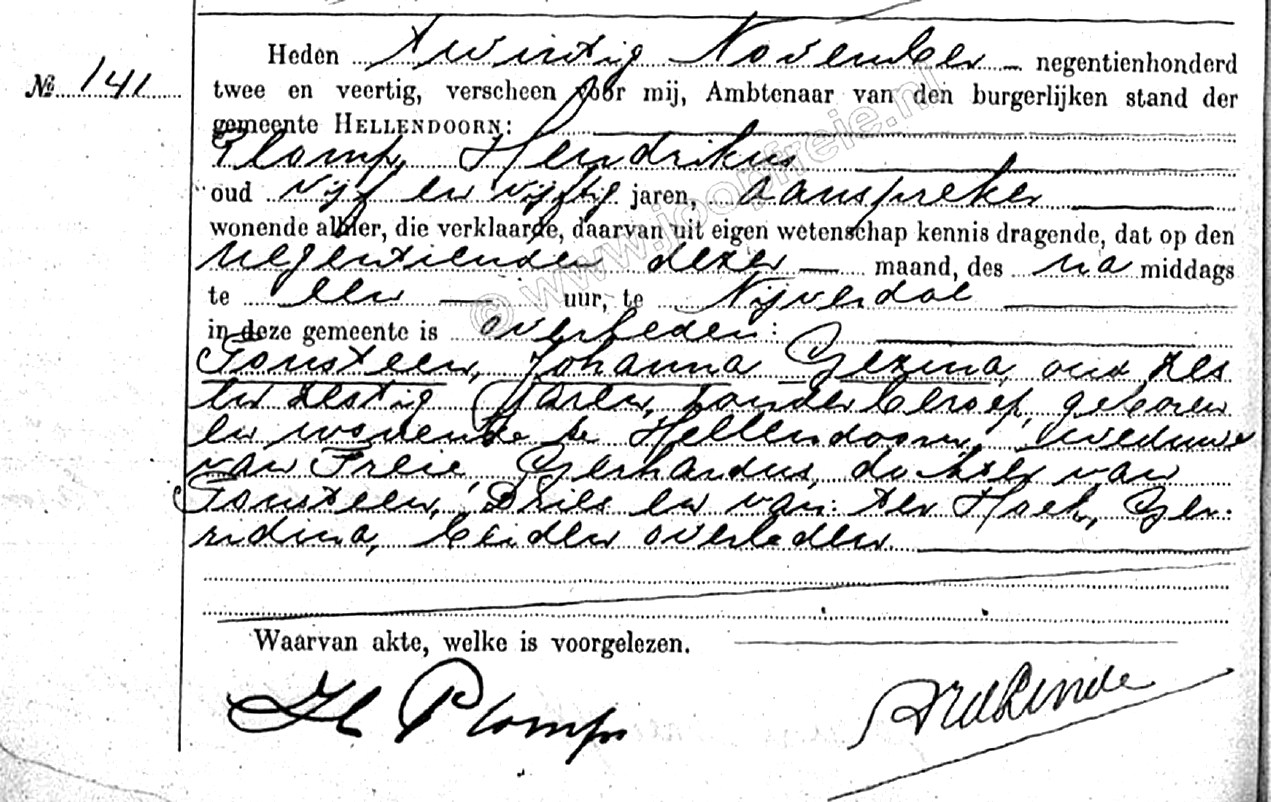 Heden twintig November negentienhonderd
№ 141
twee en veertig, verscheen voor mij, Ambtenaar van den burgerlijken stand der
gemeente HELLENDOORN:
Plomp, Hendrikus
oud vijf en vijftig jaren, aanspreker
wonende alhier, die verklaarde, daarvan uit eigen wetenschap kennis dragende, dat op den
negentienden dezer maand, des na middags
te een uur, te Nijverdal
in deze gemeente is overleden:
Fonsteen, Johanna Gezina, oud zes
en zestig jaren, zonder beroep, geboren
en wonende te Hellendoorn, weduwe
van Freie Gerhardus, dochter van
Fonsteen, Dries en van: ter Hoek, Ger-
ridina, beiden overleden.
Waarvan akte, welke is voorgelezen.
H Plomp
© www.joopfreie.nl